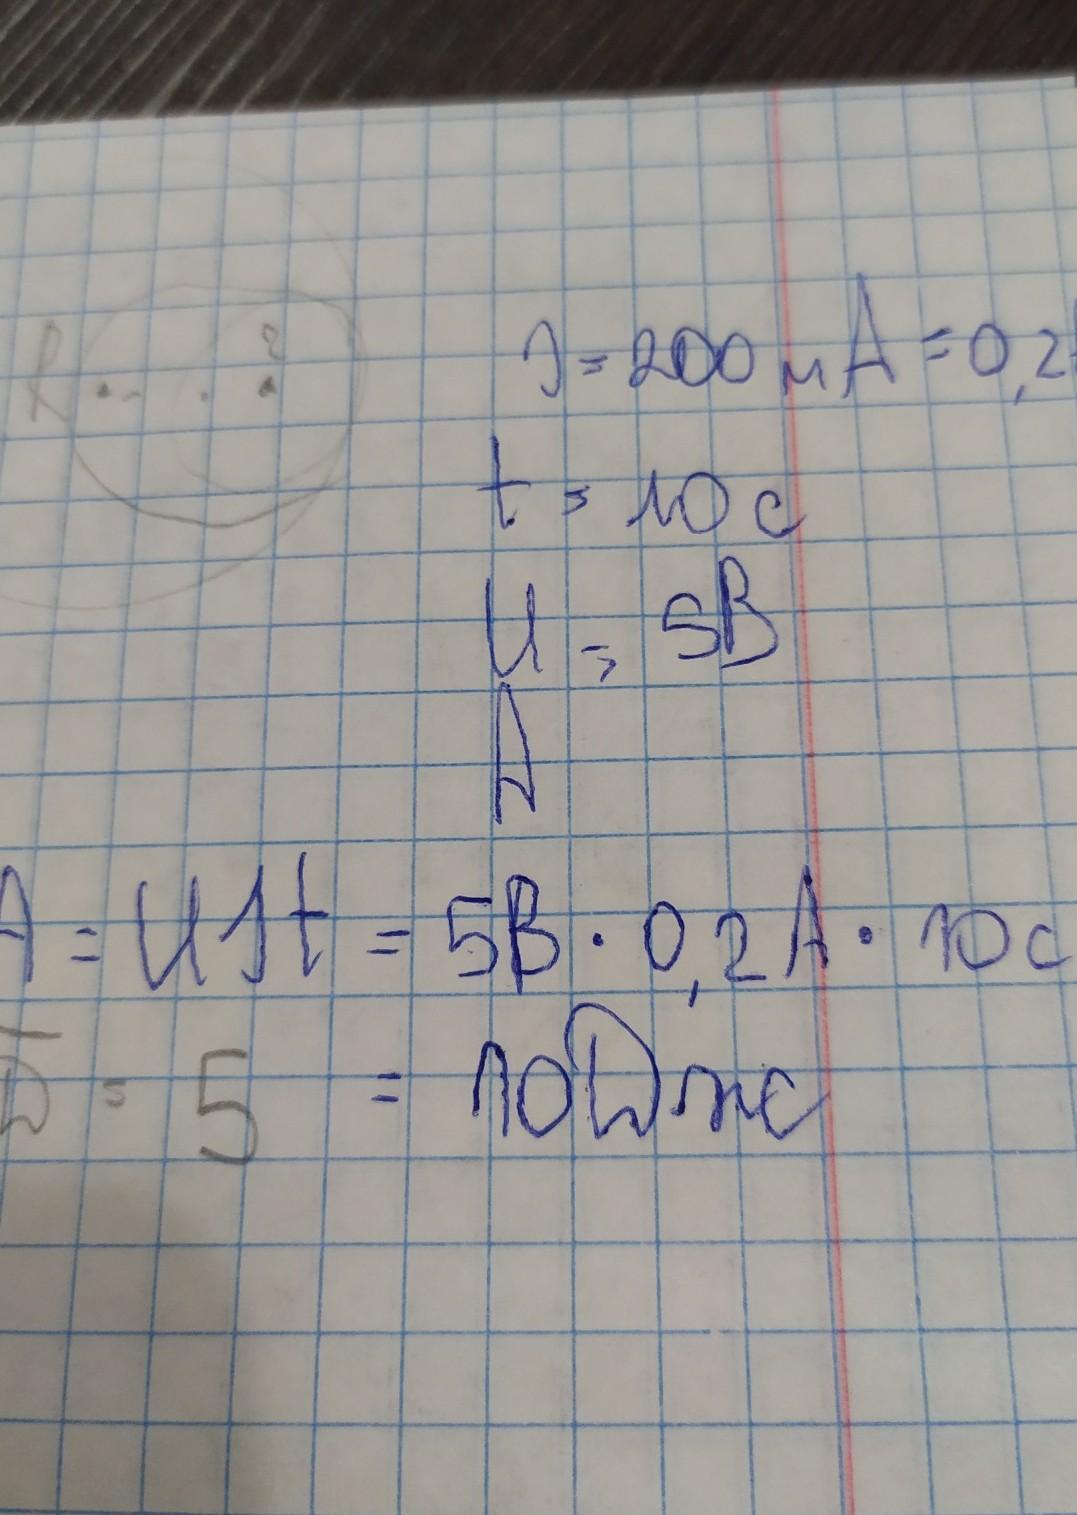 R
2
I = 200 мА = 0,2
t = 10 с
U = 5В
A
A = UIt = 5В · 0,2А · 10с
= 5 = 10Дж